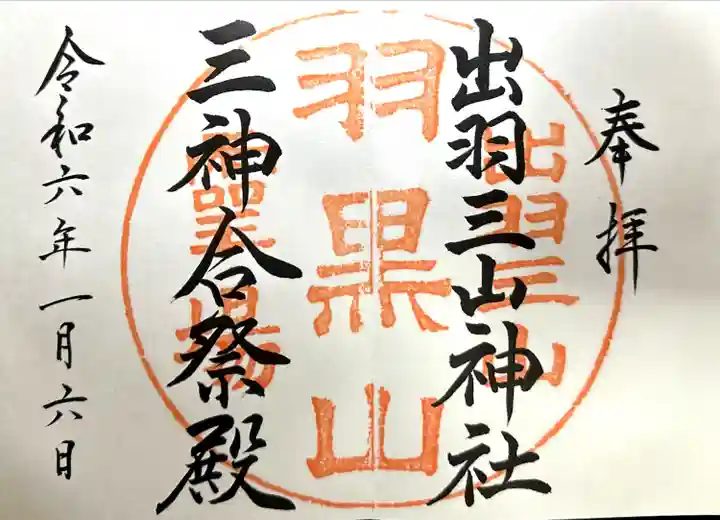 奉拝
出羽三山神社
三神合祭殿
令和六年一月六日
出羽三山
羽黒山